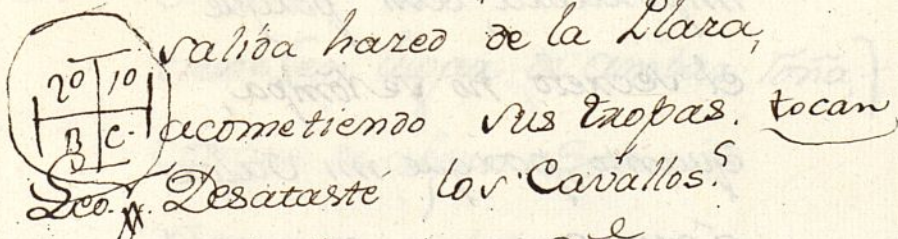 salida hazed de la Plaza,
20 10
acometiendo sus tropas. tocan
B C.
Leo. Desataste los Cavallos?